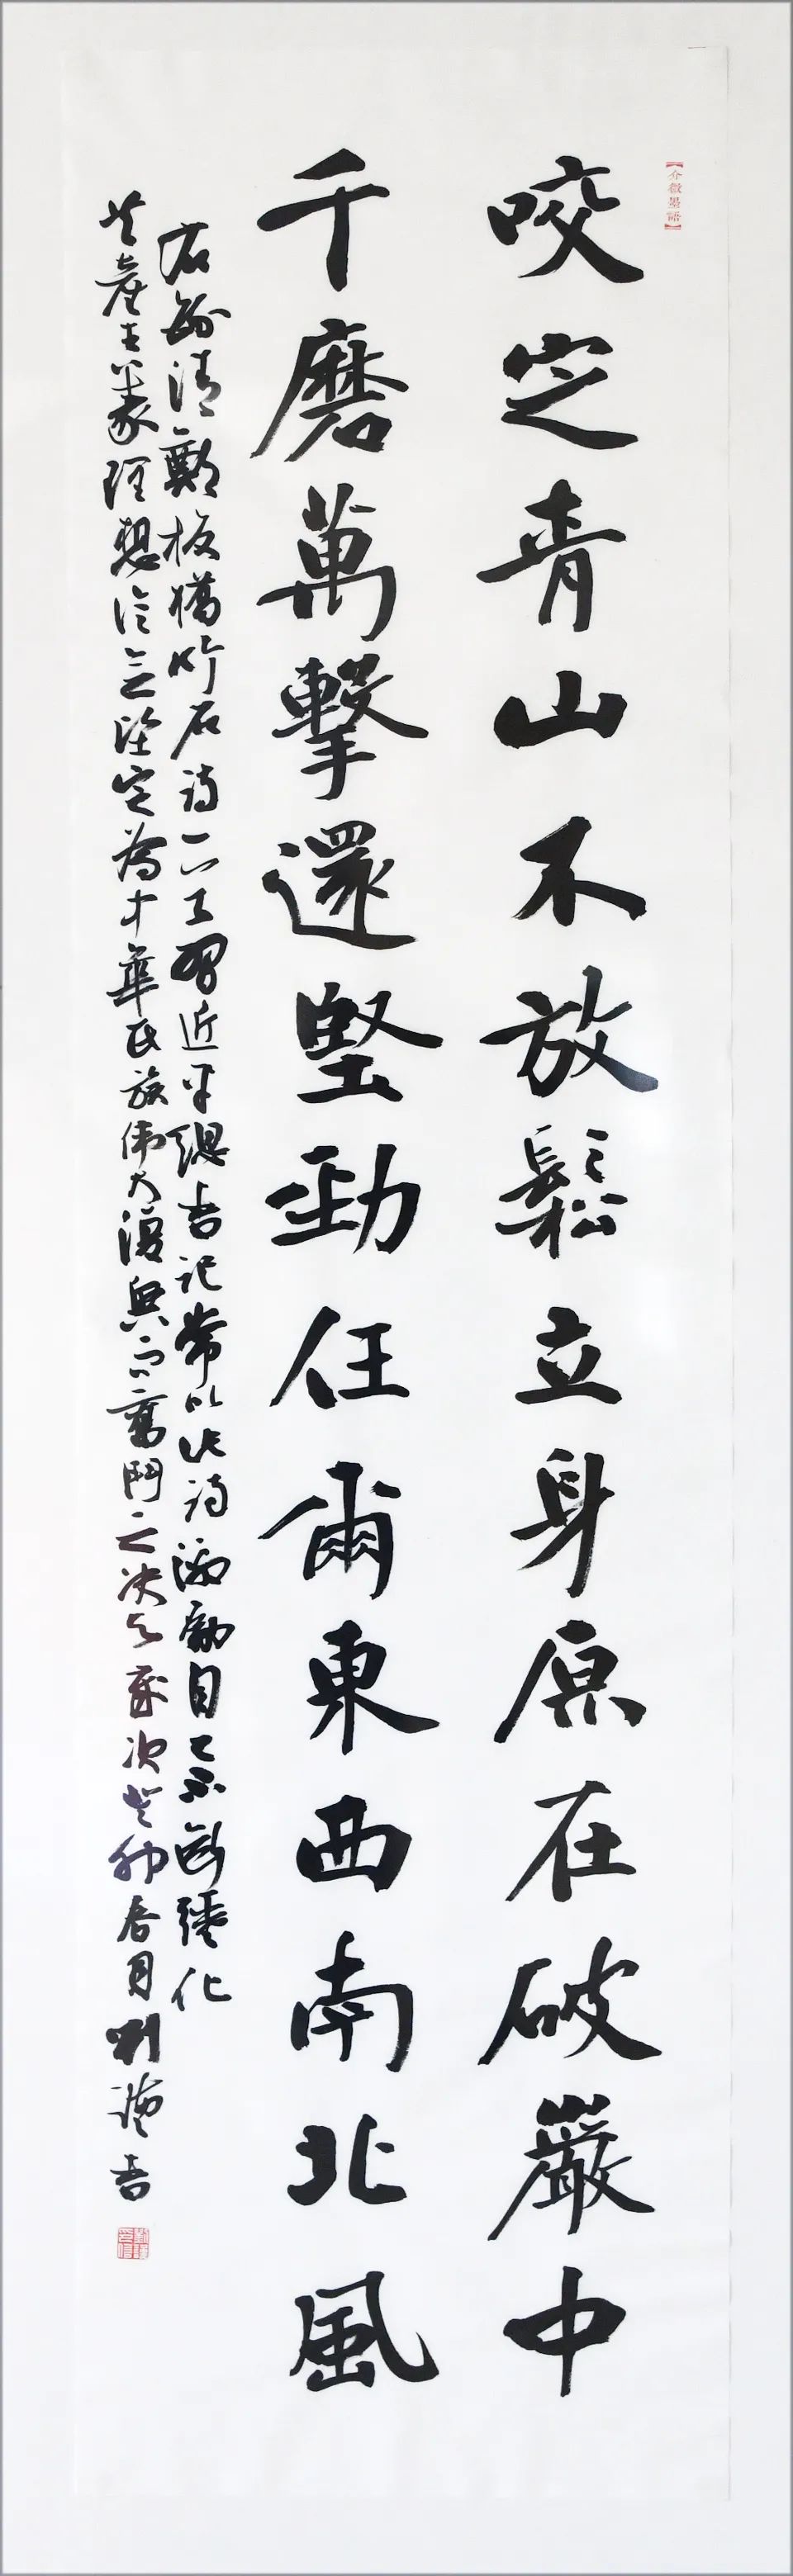 【介微墨語】
咬定青山不放鬆立身原在破嚴中
千磨萬擊還堅勁任爾東西南北風
右錄清鄭板橋竹石詩一首習近平總書記常以此詩激勵自己不斷強化
共產主義理想信念堅定為中華民族偉大復興而奮鬥之決心歲次癸卯春月劉